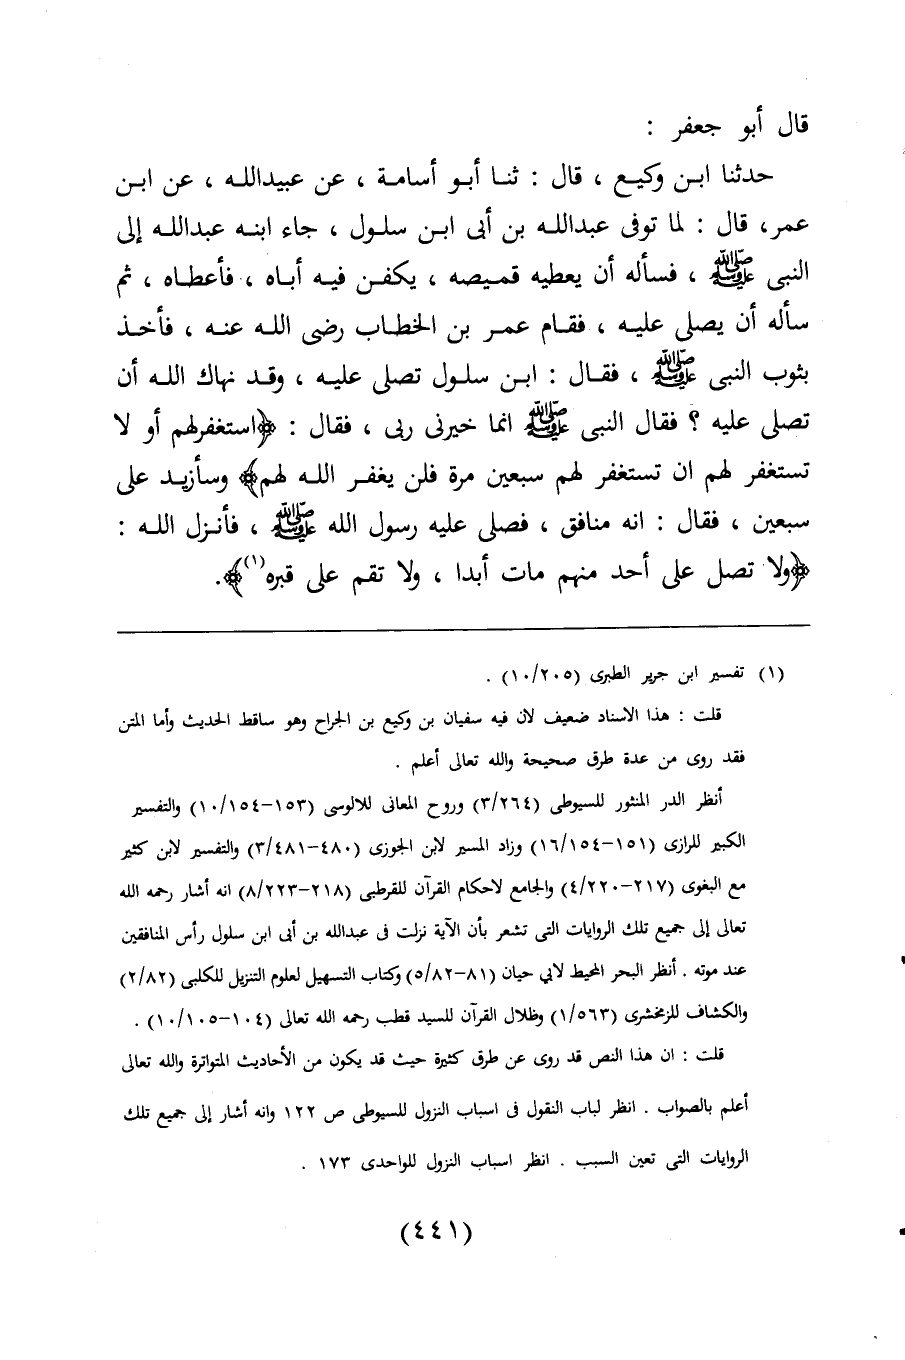 قال أبو جعفر :
حدثنا ابن وكيع ، قال : ثنا أبو أسامة ، عن عبيدالله ، عن ابن
عمر، قال : لما توفى عبدالله بن أبى ابن سلول ، جاء ابنه عبدالله إلى
النبى ﷺ ، فسأله أن يعطيه قميصه ، يكفن فيه أباه ، فأعطاه ، ثم
سأله أن يصلى عليه ، فقام عمر بن الخطاب رضى الله عنه ، فأخذ
بثوب النبى ﷺ ، فقال : ابن سلول تصلى عليه ، وقد نهاك الله أن
تصلى عليه ؟ فقال النبى ﷺ انما خيرنى ربى ، فقال : ﴿استغفرلهم أو لا
تستغفر لهم ان تستغفر لهم سبعين مرة فلن يغفر الله لهم﴾ وسأزيد على
سبعين ، فقال : انه منافق ، فصلى عليه رسول الله ﷺ ، فأنزل الله :
﴿ولا تصل على أحد منهم مات أبدا ، ولا تقم على قبره(١)﴾.
(١) تفسير ابن جرير الطبرى (١٠/٢٠٥) .
قلت : هذا الاسناد ضعيف لان فيه سفيان بن وكيع بن الجراح وهو ساقط الحديث وأما المتن
فقد روى من عدة طرق صحيحة والله تعالى أعلم .
أنظر الدر المنثور للسيوطى (٣/٢٦٤) وروح المعانى للالوسى (١٥٣-١٠/١٥٤) والتفسير
الكبير للرازى (١٥١-١٦/١٥٤) وزاد المسير لابن الجوزى (٤٨٠-٣/٤٨١) والتفسير لابن كثير
مع البغوى (٢١٧-٤/٢٢٠) والجامع لاحكام القرآن للقرطبى (٢١٨-٨/٢٢٣) انه أشار رحمه الله
تعالى إلى جميع تلك الروايات التى تشعر بأن الآية نزلت فى عبدالله بن أبى ابن سلول رأس المنافقين
عند موته . أنظر البحر المحيط لابي حيان (٨١-٥/٨٢) وكتاب التسهيل لعلوم التنزيل للكلبى (٢/٨٢)
والكشاف للزمخشرى (١/٥٦٣) وظلال القرآن للسيد قطب رحمه الله تعالى (١٠٤-١٠/١٠٥) .
قلت : ان هذا النص قد روى عن طرق كثيرة حيث قد يكون من الأحاديث المتواترة والله تعالى
أعلم بالصواب . انظر لباب النقول فى اسباب النزول للسيوطى ص ١٢٢ وانه أشار إلى جميع تلك
الروايات التى تعين السبب . انظر اسباب النزول للواحدى ١٧٣ .
(٤٤١)